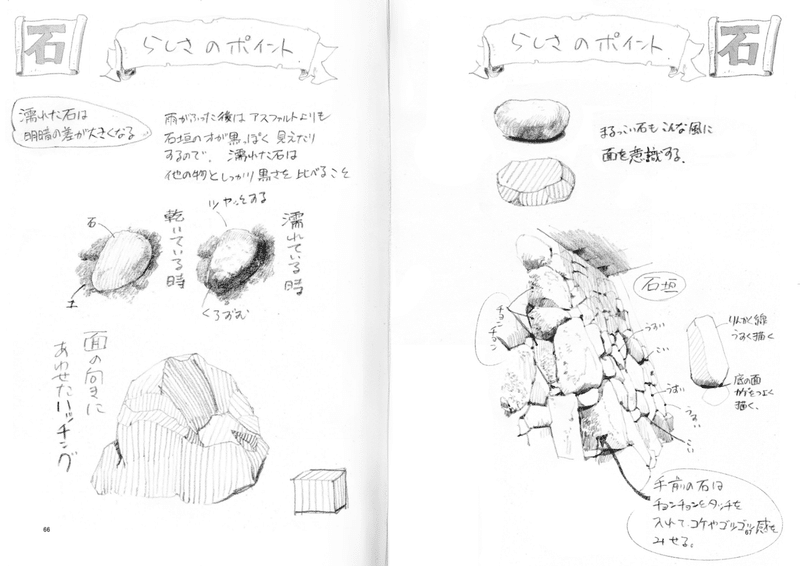 石
らしさのポイント
濡れた石は
明暗の差が大きくなる
雨がふった後は アスファルトよりも
石垣の方が黒っぽく 見えたり
するので、濡れた石は
他の物としっかり黒さを比べること
石
土
乾いている時
ツヤッとする
くろずむ
濡れている時
面の向きに
あわせたハッチング
66
らしさのポイント
石
まるっこい石もこんな風に
面を意識する。
石垣
チョンチョン
うすい
こい
うすい
うすい
こい
りんかく線
うすく描く
底の面
カゲをつよく
描く、
手前の石は
チョンチョンとタッチを
入れて コケやゴツゴツ感を
みせる。